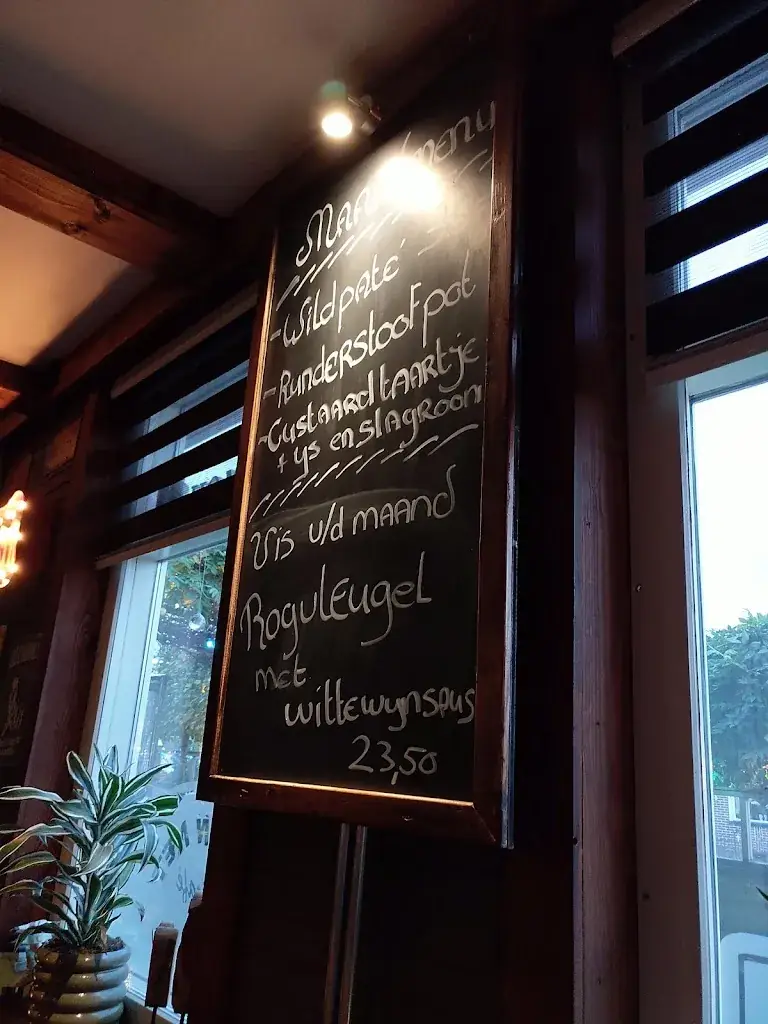 menu
- Wildpaté
- Runderstoofpot
- Custaardtaartje
+ ijs en slagroom
Vis v/d maand
Rogvleugel
met
wittewijnsaus
23,50